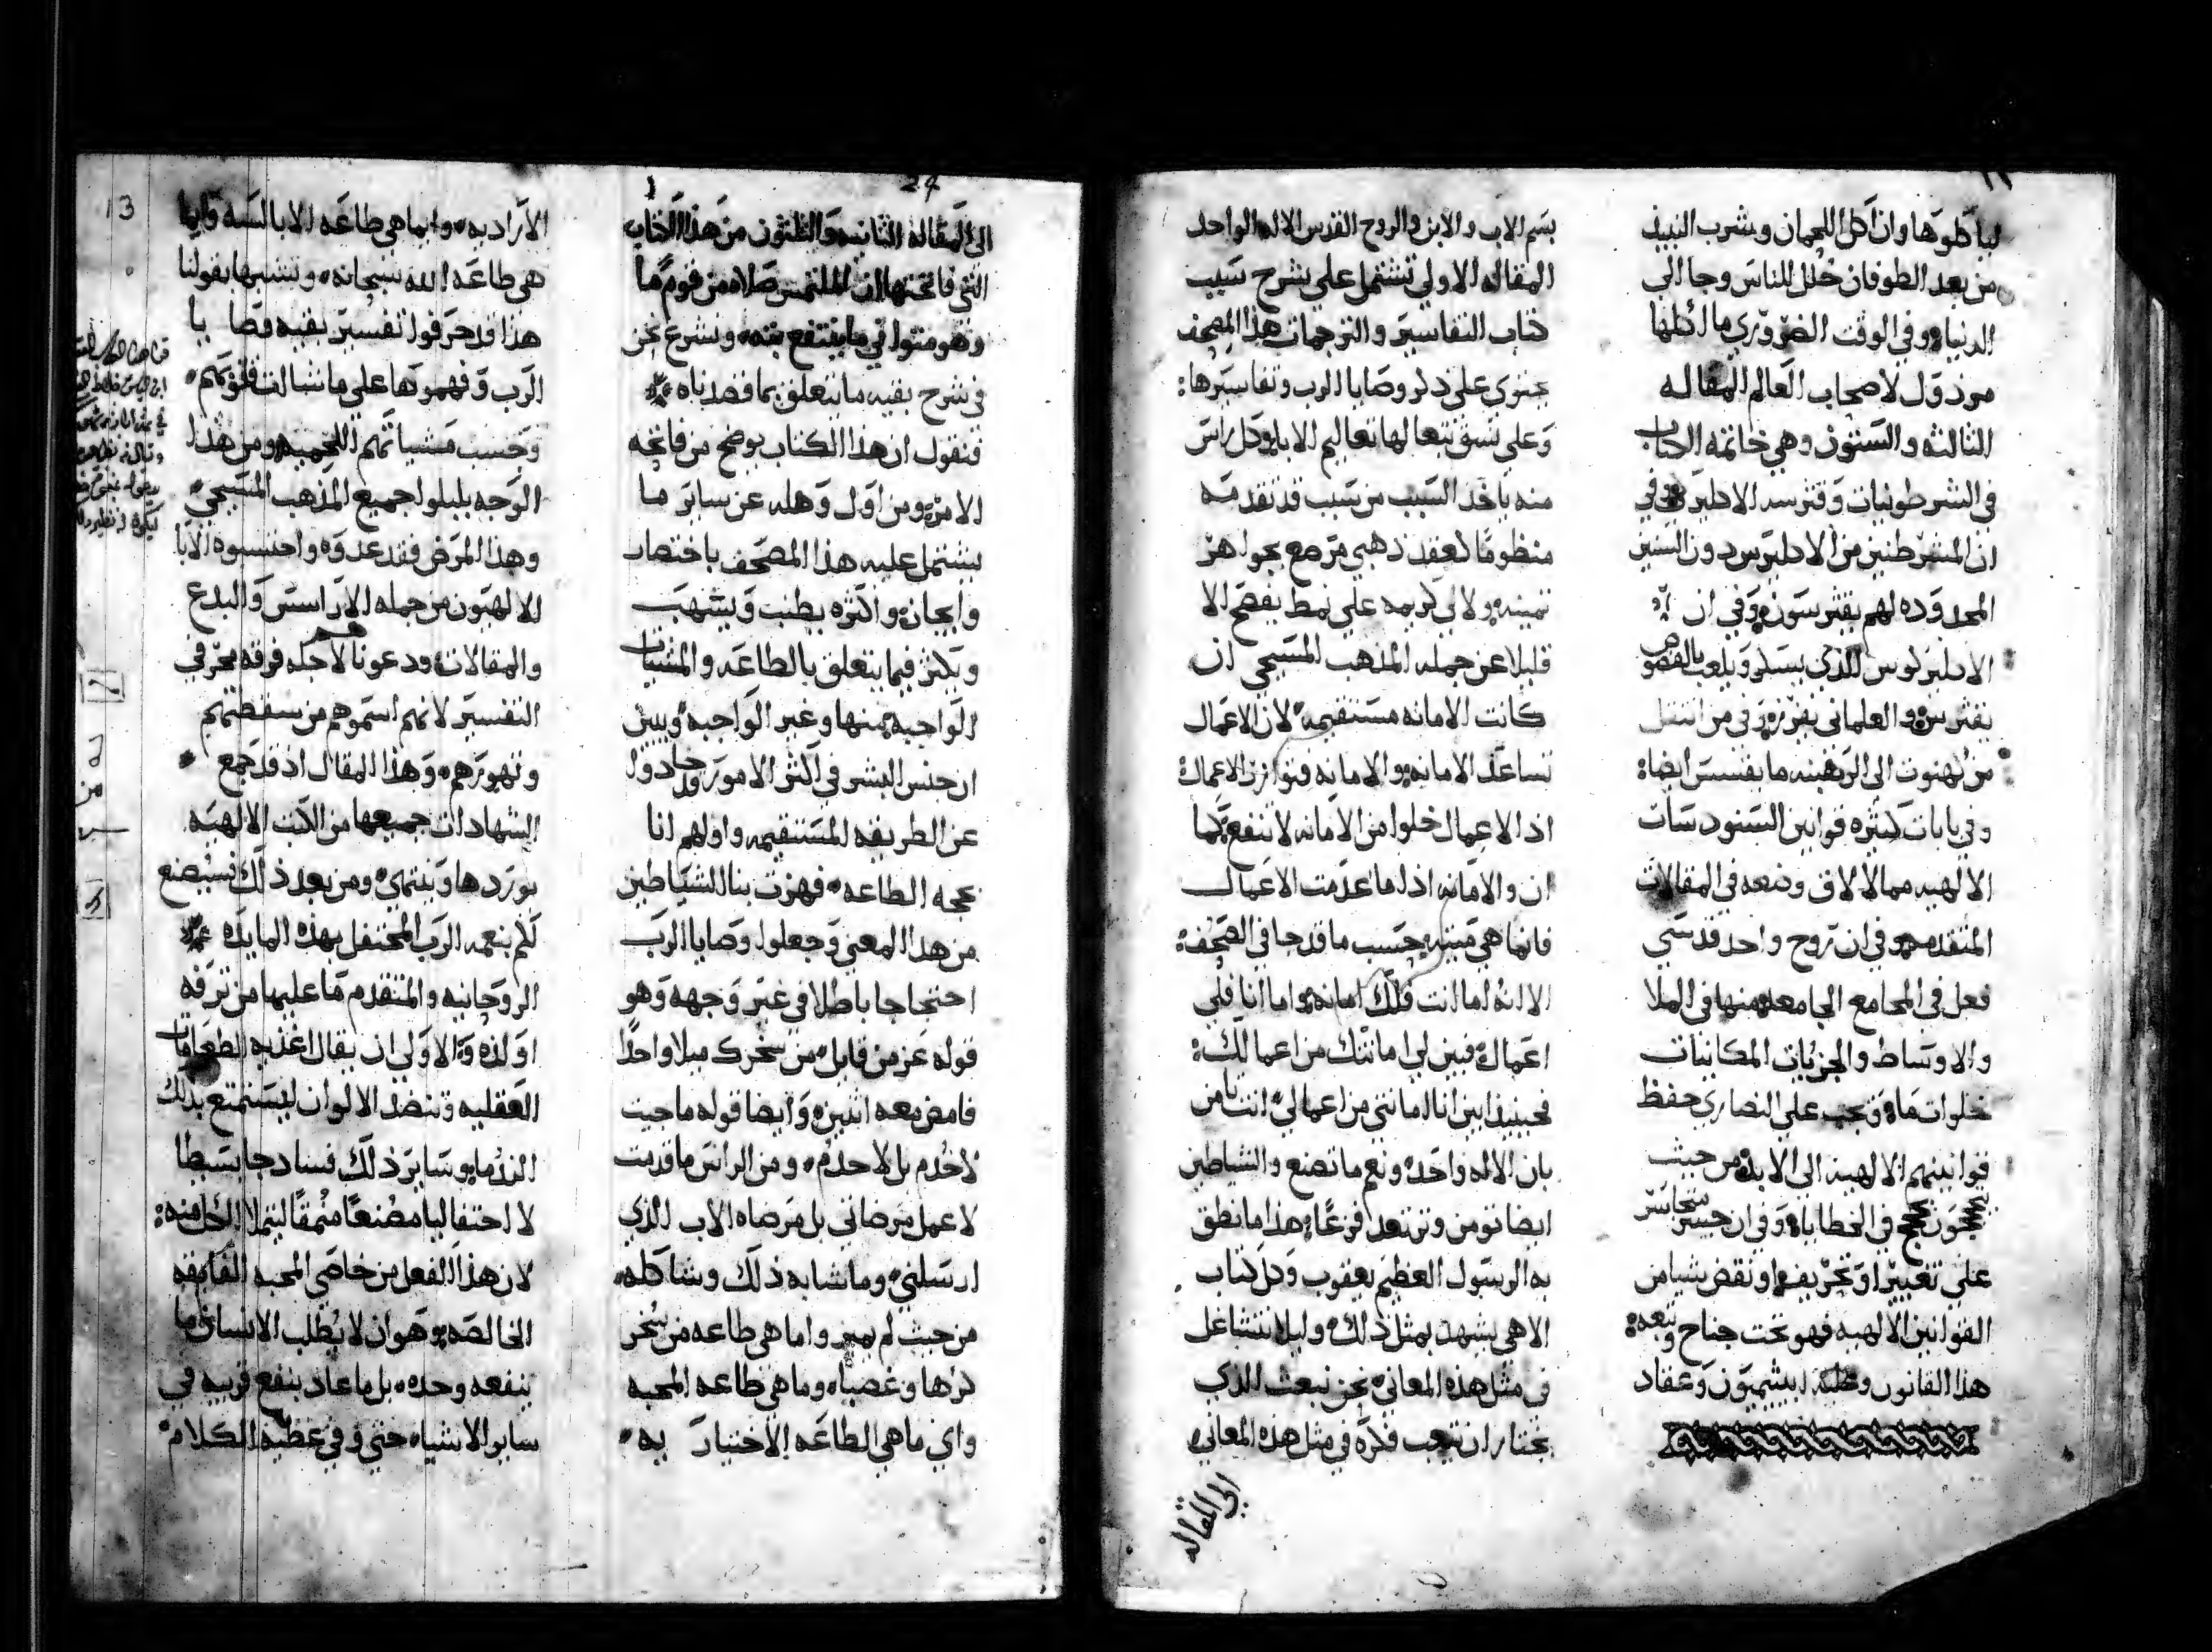 لياكلوها وان اكل اللحمان وبشرب النبيذ
من بعد الطوفان حلل للناس وجا الي
الدنيا، وفي الوقت الضروري ما اكلها
مرذول لاصحاب العالم المقاله
الثالثه والستون وهي خاتمه الكتاب
في الشرطونيات وقترسه الاكليرس وفي
ان المشرطنين من الاكليرس دون السنين
المحدوده لهم يقثرسون، وفي ان
الاكليريكوس الذي يسكر ويلعب بالفصوص
يقثرس، والعلماني يفرز، وفي من انتقل
من كهنوت الي الرهبنه ما يقسس ايضا:
وفي بابات كثيره قوانين السنودسات
الالهيه مما لالاق وضعه في المقالات
المتقدمه، وفي ان روح واحد قدسي
فعل في المجامع الجامعه منها في الملا
والاوساط والجزئيات المكانيات
خلوات ما، ويجب علي النصاري حفظ
قوانينهم الالهيه الي الابد، من حيث
في الخطايا، وفي ان من يتجاسر
علي تغيير او تحريف او نقض شيا من
القوانين الالهيه فهو تحت جناح وتبعه:
هذا القانون وعليه ايشيميون وعقاد
بسم الاب والابن والروح القدس الاله الواحد
المقاله الاولي تشتمل علي شرح سبب
كتاب التفاسير والترجمات هذا المصحف
يحتوي علي ذكر وصايا الرب وتفاسيرها:
وعلي نسق تتعالها تعاليم الابا، وكل راس
منه ياخذ السبب من سبب قد تقدمه
منظوما كعقد ذهبي مرصع بجواهر
ثمينه، ولالي كريمه علي نمط يفصح الا
قليلا عن جمله المذهب المسيحي ان
كانت الامانه مستقيمه، لان الاعمال
تساعد الامانه، والامانه توازن الاعمال:
اذ الاعمال خلوا من الامانه لا تنفع، كما
ان والامانه اذا ما عدمت الاعمال
فانما هي ميته، حسب ما قد جا في الصحف:
الا انه اما انت فلك امانه، واما انا فلي
اعمال، فبين لي امانتك من اعمالك:
فحينيذ ابين انا امانتي من اعمالي، انت تامن
بان الاله واحد، ونعم ما تصنع والشياطين
ايضا تومن وترتعد فزعًا: هذا ما نطق
به الرسول العظيم يعقوب وكل كتاب
الاهي يشهد بمثل ذلك، وليلا نتشاغل
في مثل هذه المعاني، نحن نبعث الذي
يختار ان يتعب فكره في مثل هذه المعاني،
الي المقاله
24
الي المقاله الثانيه والثلثون من هذا الكتاب
التي فاتحتها ان الملتمس صلاه من قوم ما
وهو متواني ما ينتفع بته، ونشرع نحن
في شرح بقيه ما يتعلق بما قصدناه
فنقول ان هذا الكتاب يوضح من فاتحه
الامر، ومن اول وهله عن ساير ما
يشتمل عليه هذا المصحف باختصار
وايجاز، واكثره يطنب ويسهب
ويكثر فيما يتعلق بالطاعه والمشيات
الواجبه منها وغير الواجبه، ويبين
ان جنس البشر في اكثر الامور قد حادوا
عن الطريقه المستقيمه واولهم انا
بحجه الطاعه، فهزت بنا الشياطين
من هذا المعني وجعلوا وصايا الرب
احتجاجا باطلا في غير وجهه وهو
قوله عز من قايل، من سخرك ميلا واحدًا
فامض معه اثنين، وايضا قوله ما جيت
لاخدم بل لاخدم، ومن الراس ما قدمت
لاعمل مرضاتي بل مرضاه الاب الذي
ارسلني، وما شابه ذلك وشاكله،
من حيث لم يميز واما هي طاعه من سخر
كرها وغصبا، وما هي طاعه المحبه
واي ما هي الطاعه الاختيار به،
13
الاراديه، وايما هي طاعه الابالسه وايما
هي طاعه الله سبحانه، ونتنبيها بقولنا
هذا قد حرفوا تفسير بقيه وصايا
الرب وفهموها علي ما شالت فوقهم،
وحسب مشياتهم اللحميه، ومن هذا
الوجه بلبلوا جميع المذهب المسيحي،
وهذا المرض فقد عدوه واحتسبوه الابا
الالهيون من جمله الاراسس والبدع
والمقالات، ودعونا لاجله فرقه محرفي
التفسير لانهم اسموهم من سفصتهم
وتهورهم، وهذا المقال اذ قد جمع
الشهادات جميعها من الكتب الالهيه
يوردها وينتهي، ومن بعد ذلك فسيضع
لكم بنعمه الرب المحتفل بهذه المايده
الروحانيه والمتقدم ما عليها من ترفه
او لذه، والاولي ان يقال اغذيه الطعامات
العقليه وتنضد الالوان ليستمتع بذلك
الندما، وساير ذلك فساذجا بسيطا
لا احتفاليا مصنعًا منمقا ليتملا الكل منه:
لان هذا الفعل من خاصي المحبه الفايقه
الخالصه، وهو ان لا يطلب الانسان ما
ينفعه وحده، بل ما عاد بنفع قريبه في
ساير الاشيا، حتي وفي عظيه الكلام،